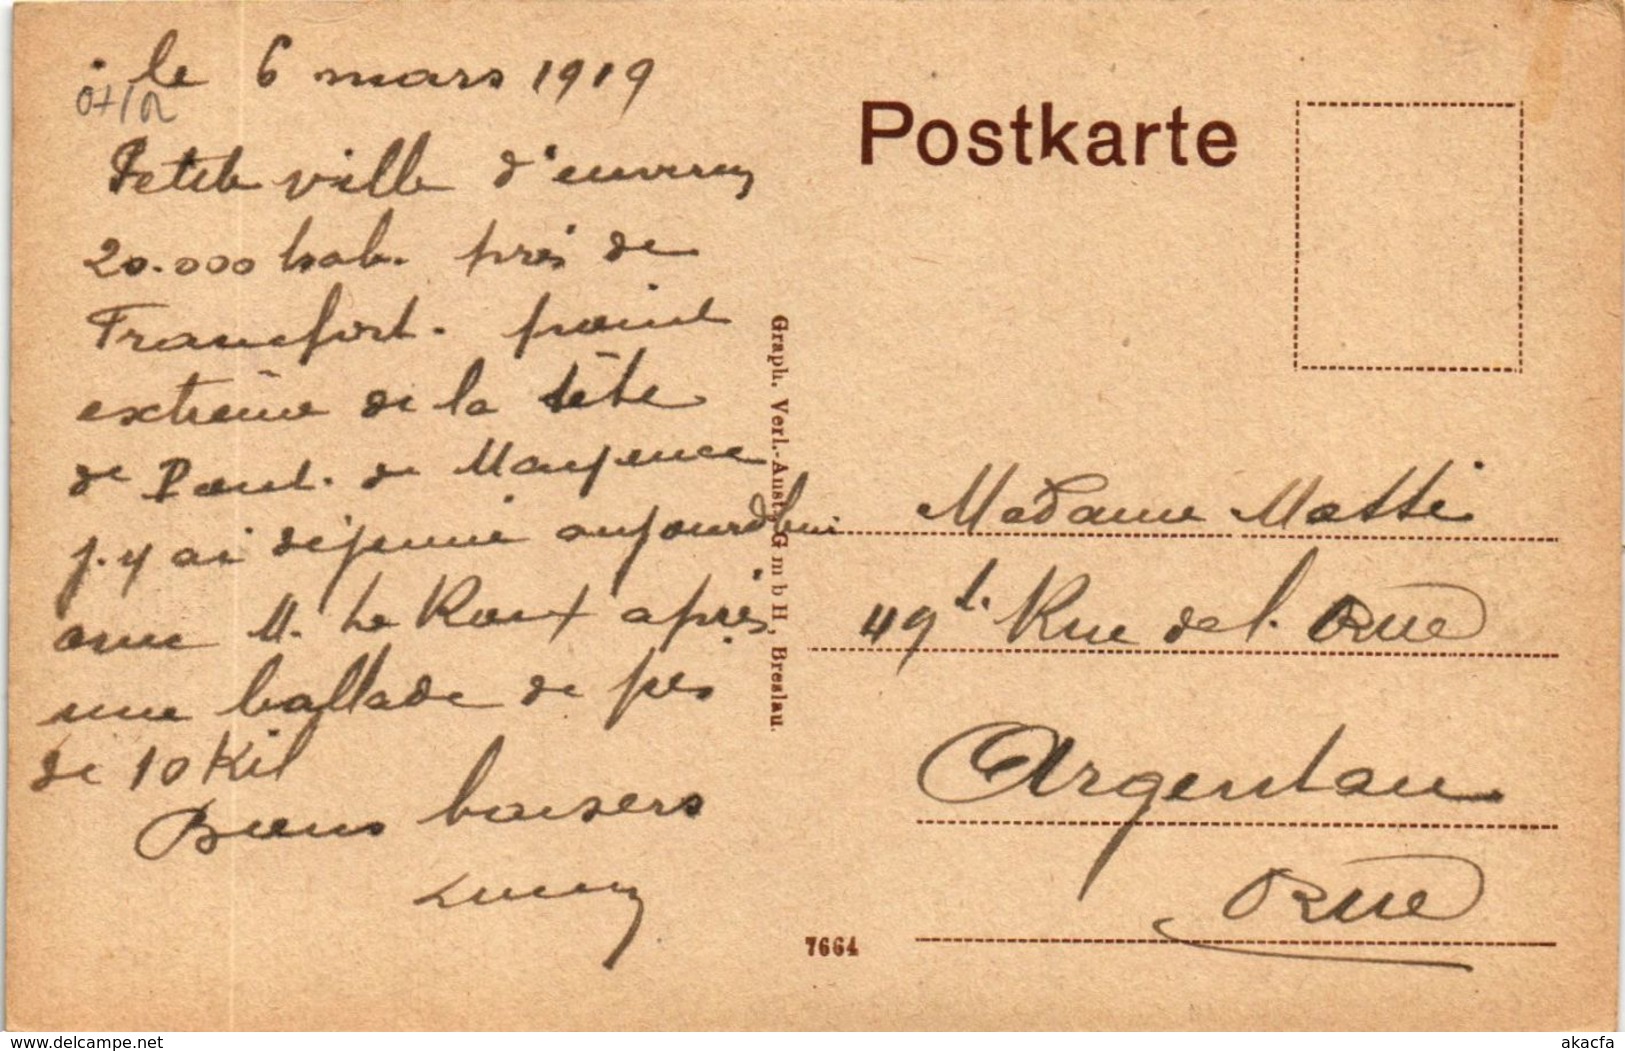 le 6 mars 1919
Petite ville d'environ
20.000 hab. près de
Francfort. point
extrême de la tête
de Pont. de Mayence
j.y ai déjeuné aujourd'hui
avec M. Le Roux après
une ballade de près
de 10 Kil
Bons baisers
Lucien
Postkarte
Graph. Verl.-Anst. G m b H, Breslau.
Madame Matti
49 t. Rue de l. Orne
Argentan
Orne
7664
www.delcampe.net
akacfa